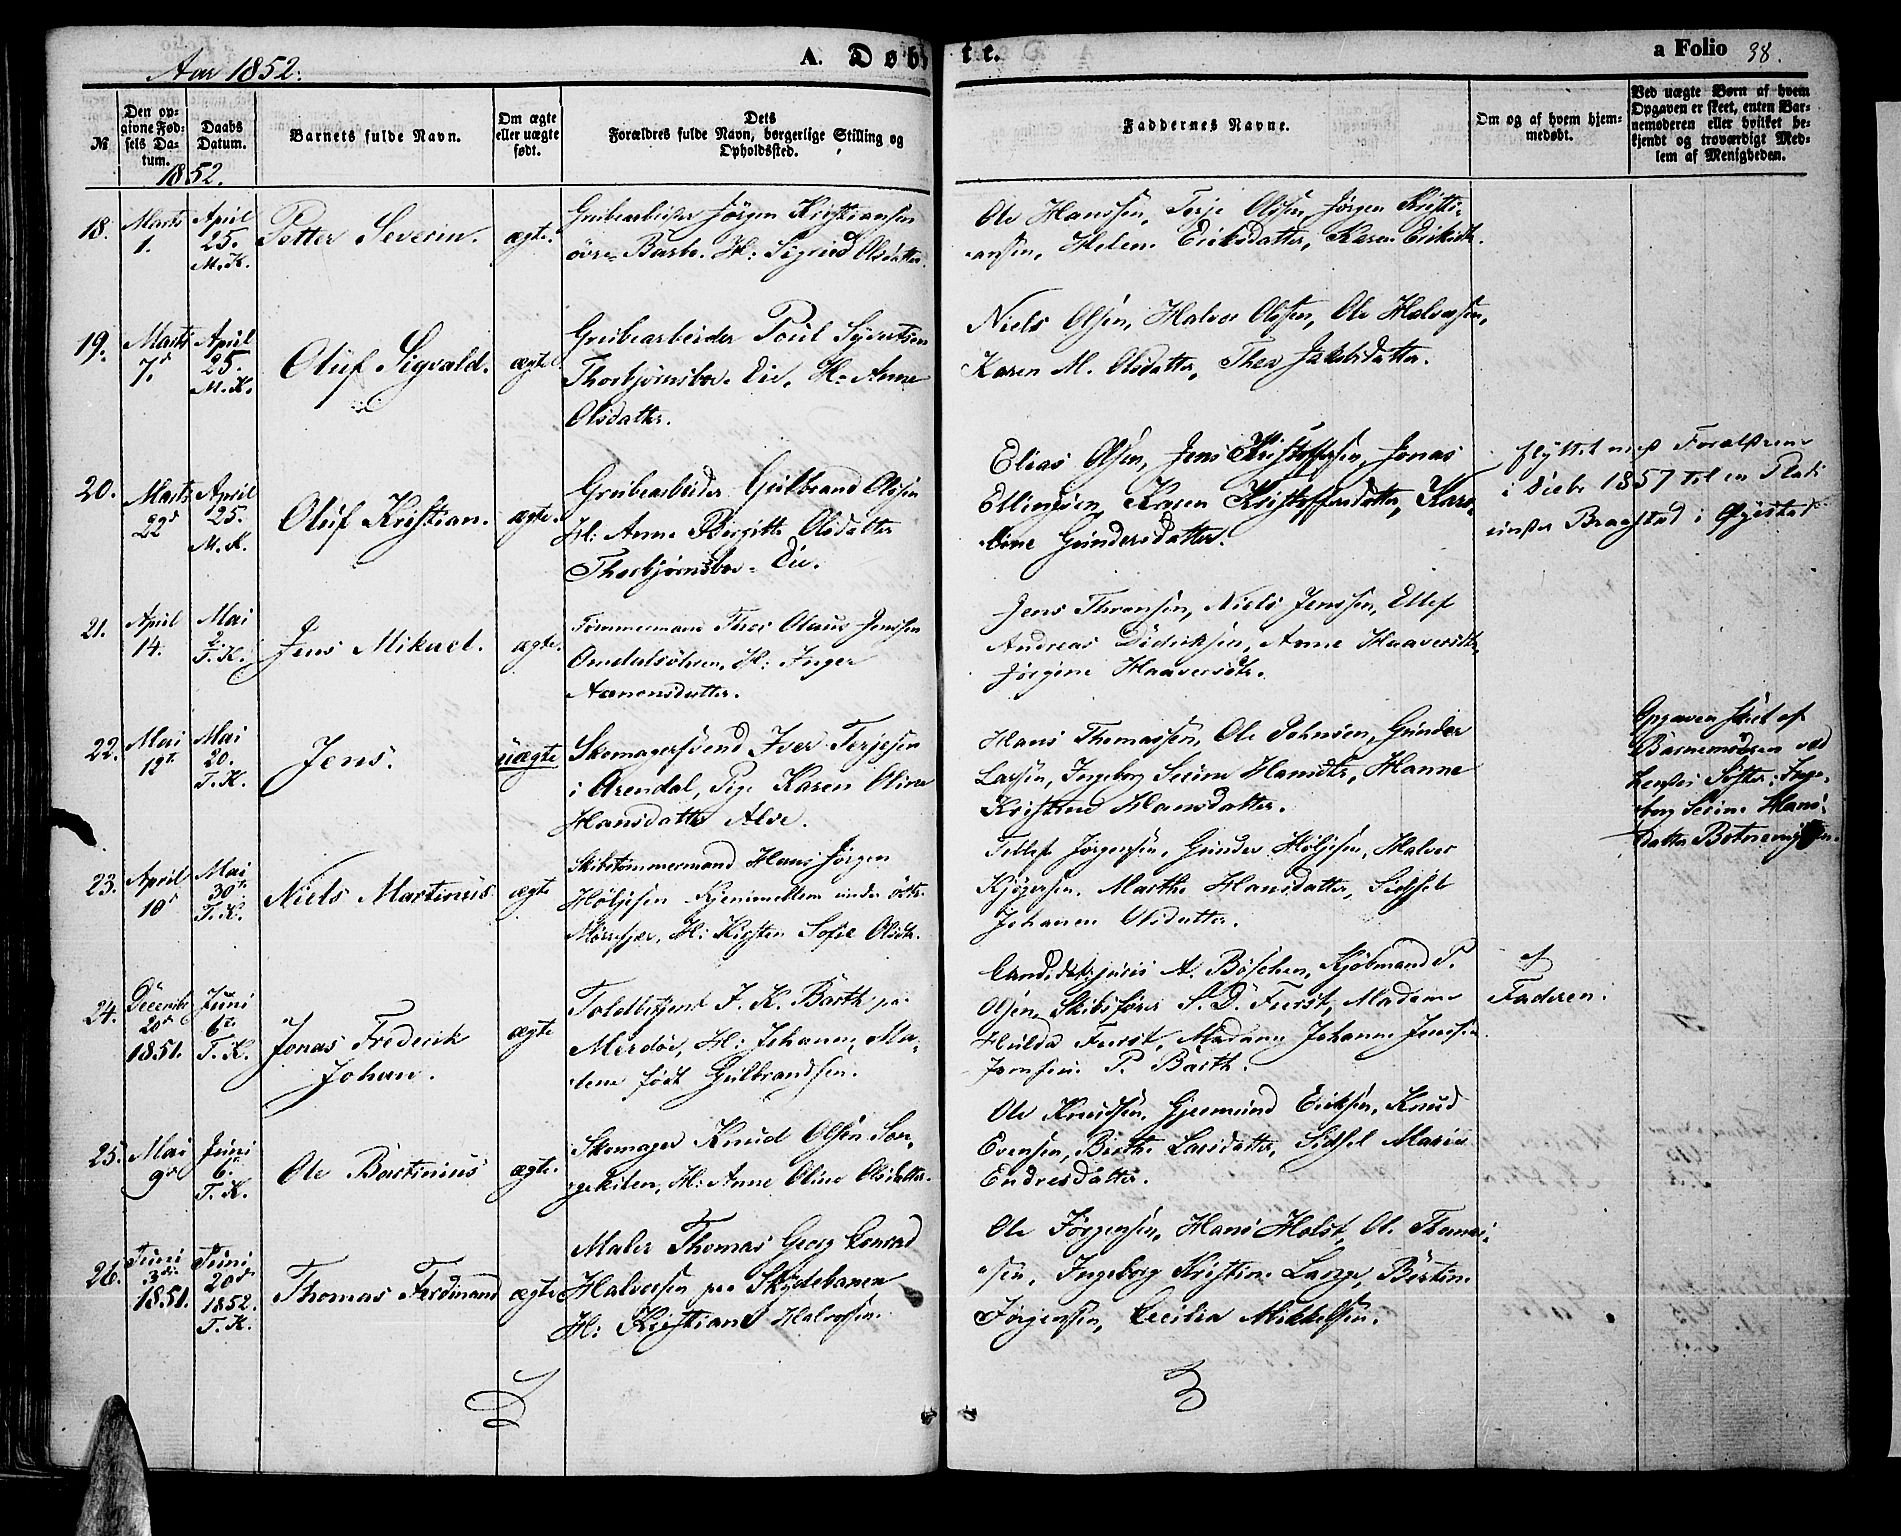 Aar 1852.
A. Døbte.
a Folio 38.
№
Den op-
givne Fød-
sels Da-
tum.
Daabs
Datum.
1852.
Barnets fulde Navn.
Om ægte
eller uægte
født.
Dets
Forældres fulde Navn, borgerlige Stilling og
Opholdssted.
Faddernes Navne.
Om og af hvem hjem-
medøbt.
Ved uægte Børn af hvem
Opgaven er skeet, enten Bar-
nemoderen eller hvilket be-
kjendt og troværdigt Med-
lem af Menigheden.
18.
Marts
1.
April
25.
M. K.
Petter Severin.
ægte.
Grubearbeider Jörgen Kristiansen
övre Barbo. H: Sigrid Olsdatter.
Ole Hanssen, Terje Olssen, Jörgen Kristi-
ansen, Helene Eriksdatter, Karen Eriksdtr.
19.
Marts
7de
April
25.
M. K.
Oluf Sigvald.
ægte
Grubearbeider Poul Syvertsen
Thorbjørnsbo-Eie, H: Anne
Olsdatter.
Niels Olsen, Halvor Olssen, Ole Halvorsen,
Karen M. Olsdatter, Thea Jakobsdatter.
20.
Marts
22de
April
25.
M. K.
Oluf Kristian.
ægte.
Grubearbeider Gulbrand Olssen
H: Anne Birgitte Olsdatter
Thorbjørnsbo-Eie.
Elias Olsen, Jens Kristoffersen, Jonas
Ellingsen, Karen Kristoffersdatter, Karo-
line Gundersdatter.
flyttet med Forældrene
i Decbr 1857 til en Plads
under Bragstad i Øyestad
21.
April
14.
Mai
2.
T. K.
Jens Mikael.
ægte.
Tømmermand Thor Olaus Jenssen
Omdalsöhren, H: Inger
Aanonsdatter.
Jens Thronsen, Niels Jenssen, Ellef
Andreas Dideriksen, Anne Haaversdtr,
Jörgine Haaversdtr.
22.
Mai
12te
Mai
20.
T. K.
Jens.
uægte
Skomagersvend Iver Terjesen
i Arendal, Pige Karen Oline
Hansdatter Alve.
Hans Thomassen, Ole Johnsen, Gunder
Larsen, Ingeborg Serine Hansdtr, Hanne
Kristine Hansdatter.
Opgaven skeet af
Barnemoderen ved
hendes Søster: Inge-
borg Serine Hans-
datter
23.
April
10de
Mai
30te
T. K.
Niels Martinius
ægte
Skibstømmermand Hans Jörgen
Höljesen Kjenimellem under östre
Mørefjær, H: Kirsten Sofie Olsdtr.
Tellef Jörgensen, Gunder Höljesen, Halvor
Kjögersen, Marthe Hansdatter, Sidsel
Johanne Olsdatter.
24.
Decembr
20de
1851.
Juni
6te
T. K.
Jonas Frederik
Johan.
ægte
Toldbetjent J. K. Barth paa
Merdöe, H: Johanne Ma-
lene født Gulbrandsen.
Candidat juris A. Böschen, Kjöbmand P.
Olsen, Skibsfører S. D. Fürst, Madame
Hulda Fürst, Madame Johanne Jenssen
Jomfru P. Barth.
af
Faderen.
25.
Mai
9de
Juni
6.
T. K.
Ole Bertinius
ægte.
Skomager Knud Olsen Son-
gekilen, H: Anne Oline Olsdatter.
Ole Knudsen, Gjermund Eriksen, Knud
Evensen, Berthe Larsdatter, Sidsel Marie
Endresdatter.
26.
Juni
3die
1851.
Juni
20de
1852.
T. K.
Thomas Ferdinand
ægte
Maler Thomas Georg Conrad
Halvorsen paa Skydebanen
H: Kristiane Halvorsen.
Ole Jørgensen, Hans Holst, Ole Thomas-
sen, Ingeborg Kristine Lange, Bertine
Jørgensen, Cecilia Mikkelsen.